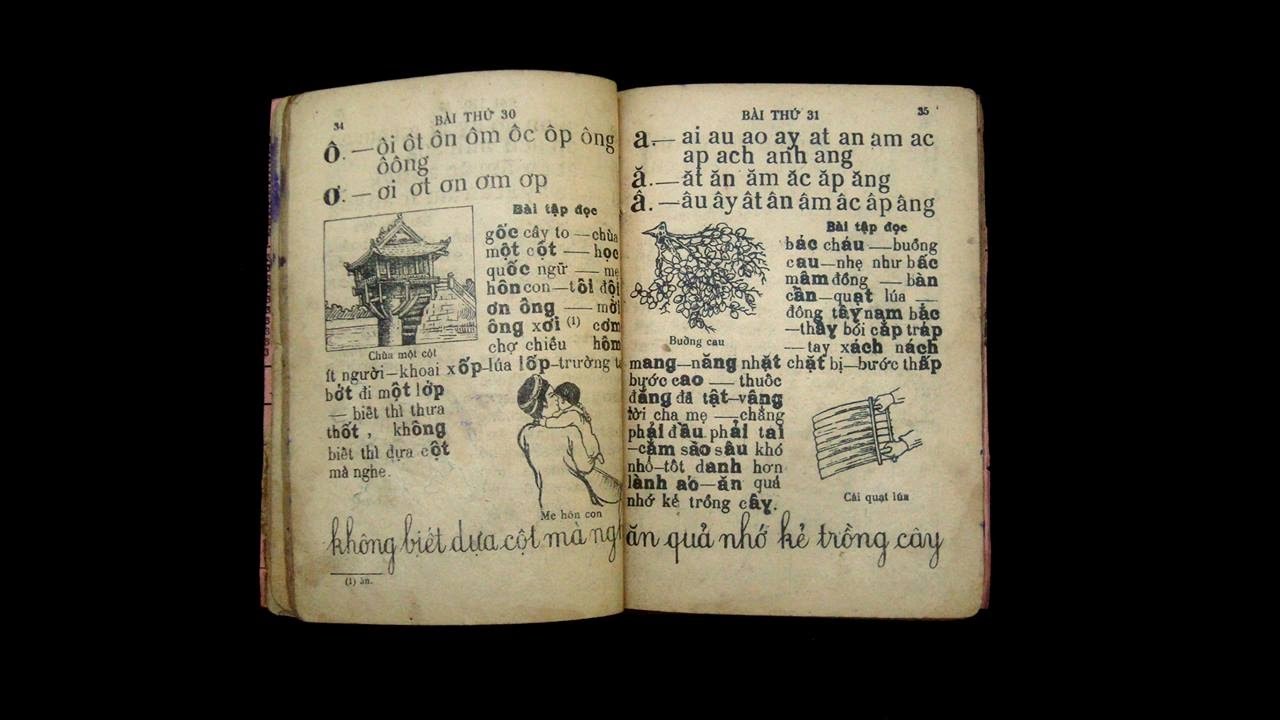 34
BÀI THỨ 30
Ô. — ôi ôt ôn ôm ôc ôp ông
ôông
Ơ. — ơi ơt ơn ơm ơp
Bài tập đọc
gốc cây to — chùa
một cột — học
quốc ngữ — mẹ
hôn con — tôi đội
ơn ông — mời
ông xơi (1) cơm
chợ chiều hôm
Chùa một cột
ít người — khoai xốp — lúa lốp — trường
bớt đi một lớp
— biết thì thưa
thốt, không
biết thì dựa cột
mà nghe.
Mẹ hôn con
không biết dựa cột mà
(1) ăn.
BÀI THỨ 31
35
a. — ai au ao ay at an am ac
ap ach anh ang
ă. — ăt ăn ăm ăc ăp ăng
â. — âu ây ât ân âm âc âp âng
Bài tập đọc
bác cháu — buồng
cau — nhẹ như bấc
mâm đồng — bàn
cần — quạt lúa —
đông tây nam bắc
— thầy bói cắp tráp
— tay xách nách
Buồng cau
mang — năng nhặt chặt bị — bước thấp
bước cao — thuốc
đắng đã tật — vâng
lời cha mẹ — chẳng
phải đầu phải tai
— cảm sào sâu khó
nhổ — tốt danh hơn
lành áo — ăn quả
nhớ kẻ trồng cây.
Cái quạt lúa
ăn quả nhớ kẻ trồng cây